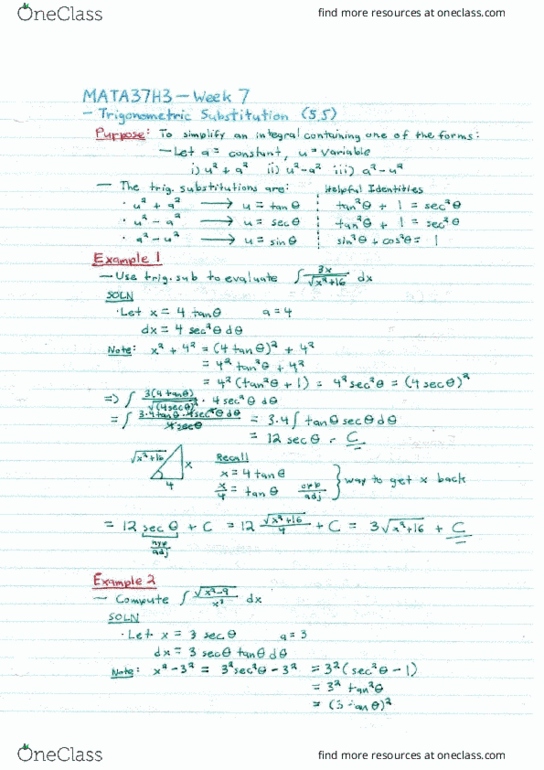 OneClass find more resources at oneclass.com
MATA37H3 – Week 7
– Trigonometric Substitution (5.5)
Purpose: To simplify an integral containing one of the forms:
– Let a = constant, u = variable
i) u² + a² ii) u² - a² iii) a² - u²
– The trig. substitutions are: Helpful Identities
· u² + a² → u = tan θ tan²θ + 1 = sec²θ
· u² - a² → u = sec θ tan²θ + 1 = sec²θ
· a² - u² → u = sin θ sin²θ + cos²θ = 1
Example 1
– Use trig. sub to evaluate ∫ 3x/√(x²+16) dx
SOLN
· Let x = 4 tan θ a = 4
dx = 4 sec²θ dθ
Note: x² + 4² = (4 tan θ)² + 4²
= 4² tan²θ + 4²
= 4² (tan²θ + 1) = 4² sec²θ = (4 sec θ)²
⇒ ∫ 3(4 tan θ)/√(4 sec θ)² · 4 sec²θ dθ
= ∫ 3·4 tan θ · 4 sec²θ dθ / 4 sec θ = 3·4 ∫ tan θ sec θ dθ
= 12 sec θ + C
√x²+16 x 4
Recall
x = 4 tan θ
x/4 = tan θ opp/adj } way to get x back
= 12 sec θ + C = 12 √(x²+16)/4 + C = 3√(x²+16) + C
hyp/adj
Example 2
– Compute ∫ √(x²-9)/x³ dx
SOLN
· Let x = 3 sec θ a = 3
dx = 3 sec θ tan θ dθ
Note: x² - 3² = 3² sec²θ - 3² = 3² (sec²θ - 1)
= 3² tan²θ
= (3 tan θ)²
OneClass find more resources at oneclass.com